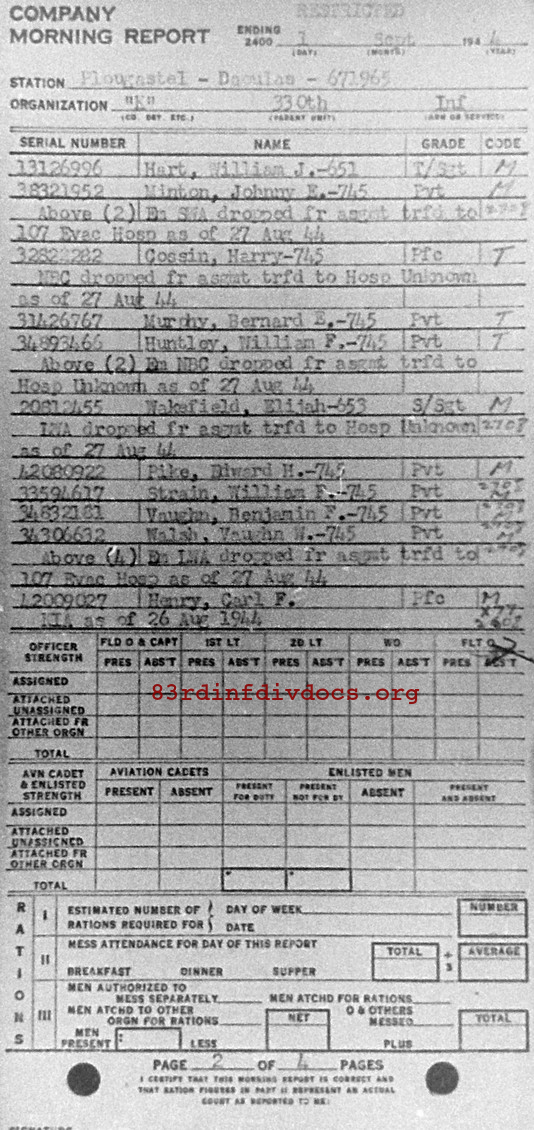 COMPANY
MORNING REPORT
RESTRICTED
ENDING
2400 1 Sept 194 4
(DAY) (MONTH) (YEAR)
STATION Plougastel - Daoulas - 671965
ORGANIZATION "K" 330th Inf
(CO. DET. ETC.) (PARENT UNIT) (ARM OR SERVICE)
SERIAL NUMBER NAME GRADE CODE
13126996 Hart, William J.-651 T/Sgt M
38321952 Minton, Johnny E.-745 Pvt M
Above (2) Em SWA dropped fr asgmt trfd to 2708
107 Evac Hosp as of 27 Aug 44
Cossin, Harry-745 Pfc T
NBC dropped fr asgmt trfd to Hosp Unknown
as of 27 Aug 44
31426767 Murphy, Bernard E.-745 Pvt T
34893466 Huntley, William F.-745 Pvt T
Above (2) Em NBC dropped fr asgmt trfd to
Hosp Unknown as of 27 Aug 44
20812455 Wakefield, Elijah-653 S/Sgt M
LWA dropped fr asgmt trfd to Hosp Unknown 2708
as of 27 Aug 44
42080922 Pike, Edward H.-745 Pvt M
33594617 Strain, William F.-745 Pvt 2708 M
34832181 Vaughn, Benjamin F.-745 Pvt 2708 M
34306632 Walsh, Vaughn W.-745 Pvt 2708 M
Above (4) Em LWA dropped fr asgmt trfd to 2708
107 Evac Hosp as of 27 Aug 44
42009027 Henry, Carl F. Pfc M
MIA as of 26 Aug 1944 2608
OFFICER STRENGTH FLD O & CAPT 1ST LT 2D LT WO FLT O
PRES ABS'T PRES ABS'T PRES ABS'T PRES ABS'T PRES ABS'T
ASSIGNED
ATTACHED UNASSIGNED
ATTACHED FR OTHER ORGN
TOTAL
83rdinfdivdocs.org
AVN CADET & ENLISTED STRENGTH AVIATION CADETS ENLISTED MEN
PRESENT ABSENT PRESENT FOR DUTY PRESENT NOT FOR DY ABSENT PRESENT AND ABSENT
ASSIGNED
ATTACHED UNASSIGNED
ATTACHED FR OTHER ORGN
TOTAL
RATIONS
I ESTIMATED NUMBER OF RATIONS REQUIRED FOR { DAY OF WEEK DATE NUMBER
II MESS ATTENDANCE FOR DAY OF THIS REPORT TOTAL ÷ 3 AVERAGE
BREAKFAST DINNER SUPPER
III MEN AUTHORIZED TO MESS SEPARATELY MEN ATCHD FOR RATIONS
MEN ATCHD TO OTHER ORGN FOR RATIONS NET O & OTHERS MESSED TOTAL
MEN PRESENT LESS PLUS
PAGE 2 OF 4 PAGES
I CERTIFY THAT THIS MORNING REPORT IS CORRECT AND
THAT RATION FIGURES IN PART II REPRESENT AN ACTUAL
COUNT AS REPORTED TO ME:
SIGNATURE